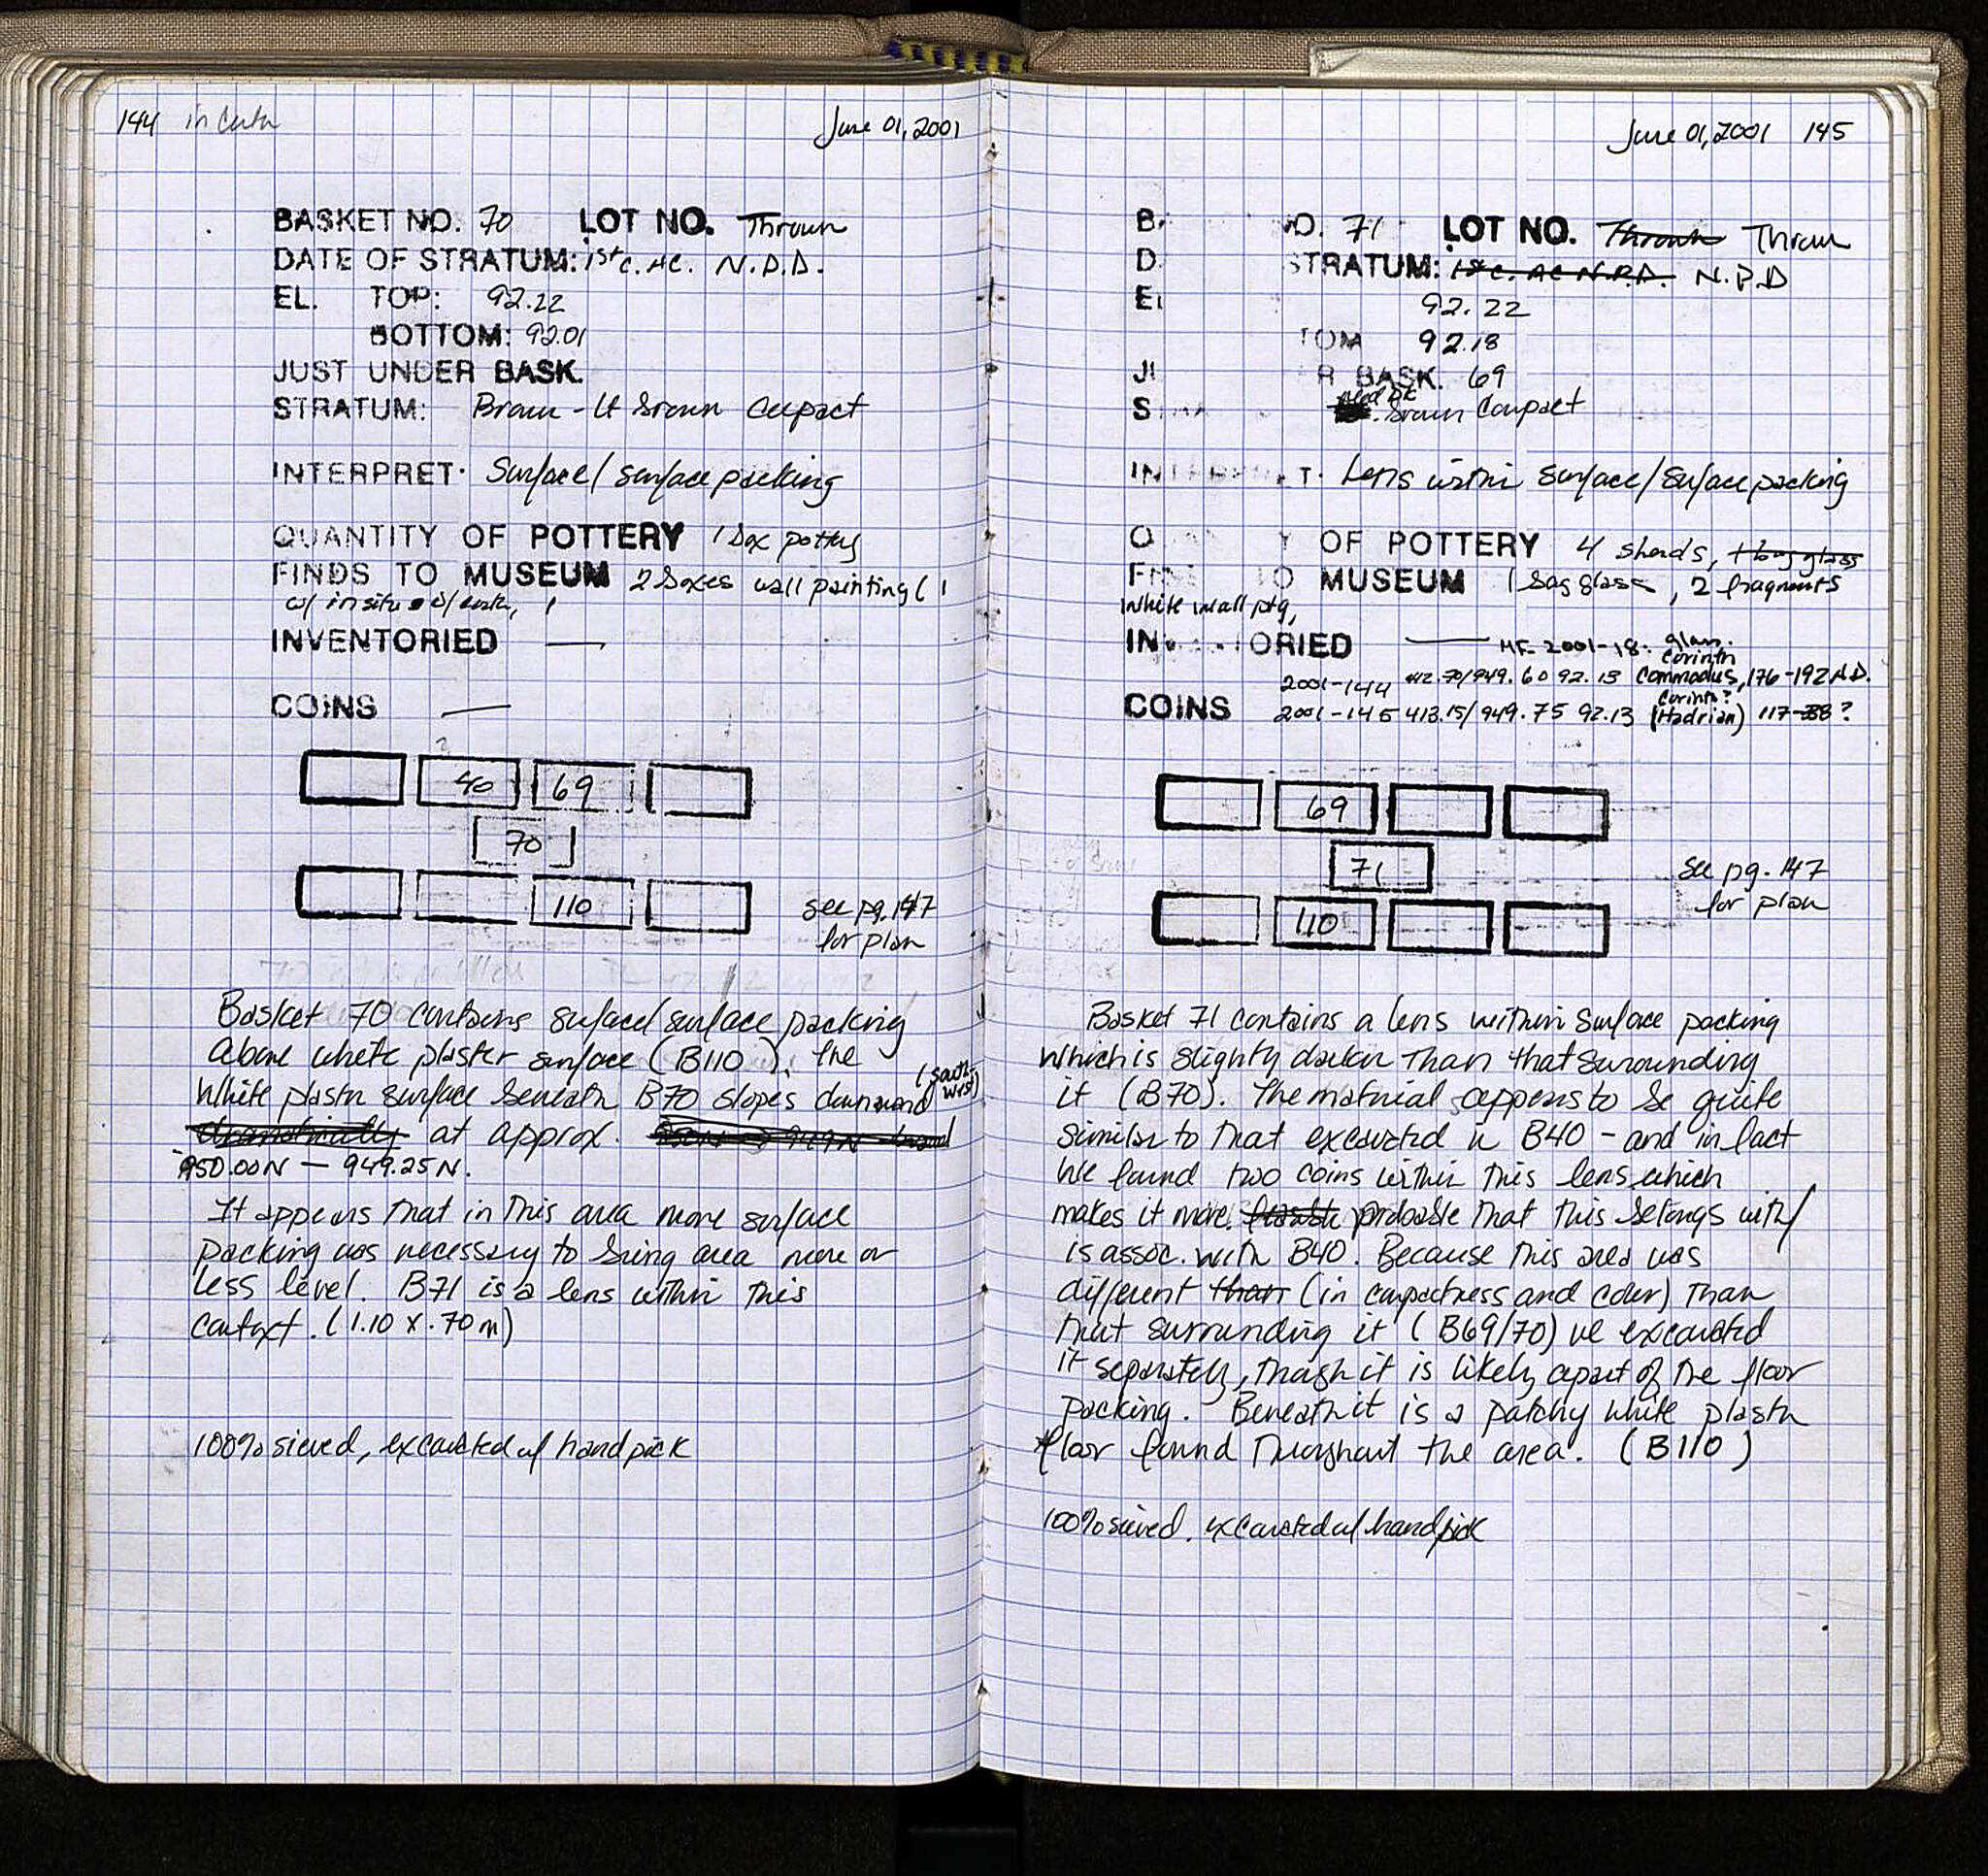 144 in
June 01, 2001
BASKET NO. 70 LOT NO. Thrown
DATE OF STRATUM: 1st c. AC. N.P.D.
EL. TOP: 92.22
BOTTOM: 92.01
JUST UNDER BASK.
STRATUM: Brown - Lt brown Compact
INTERPRET. Surface/surface packing
QUANTITY OF POTTERY 1 box pottery
FINDS TO MUSEUM 2 boxes wall painting (1
w/ in situ w/ earth,
INVENTORIED —
COINS —
40 69
70
110
see pg. 147
for plan
Basket 70 contains surface/surface packing
above white plaster surface (B110). The
white plaster surface beneath B70 slopes downward (south-
west)
dramatically at approx. 950N → 949N
950.00N — 949.25N.
It appears that in this area more surface
packing was necessary to bring area more or
less level. B71 is a lens within this
context. (1.10 x .70m)
100% sieved, excavated w/ hand pick
June 01, 2001 145
B. O. 71 LOT NO. Thrown Thrown
D. STRATUM: 1st c. AC N.P.D. N.P.D
El 92.22
TOM 92.18
JI R BASK. 69
S Med Dk
brown Compact
INT T. Lens within surface/surface packing
Q Y OF POTTERY 4 sherds, 1 bag glass
FIN O MUSEUM 1 bag glass, 2 fragments
white wall ptg,
INV ORIED — MF-2001-18: glass.
Corinth
2001-144 412.70/949.60 92.13 Commodus, 176-192 A.D.
Corinth?
COINS 2001-145 413.15/949.75 92.13 (Hadrian) 117-38?
69
71
110
see pg. 147
for plan
Basket 71 contains a lens within surface packing
which is slighty darker than that surounding
it (B70). The material appears to be quite
similar to that excavated in B40 - and in fact
we found two coins within this lens which
makes it more probable that this belongs with/
is assoc. with B40. Because this area was
different than (in compactness and color) than
that surrounding it (B69/70) we excavated
it separately, though it is likely apart of the floor
packing. Beneath it is a patchy white plaster
floor found throughout the area. (B110)
100% sieved. excavated w/ hand pick